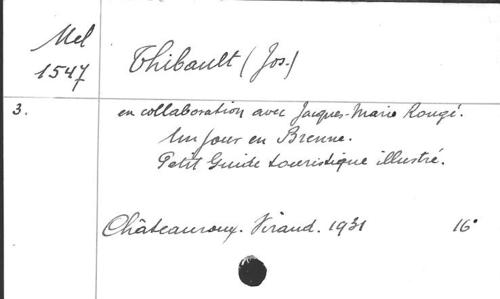 Mel
1547
Thibault (Jos.)
3.
en collaboration avec Jacques-Marie Rougé.
Un jour en Brenne.
Petit Guide touristique illustré.
Châteauroux. Viraud. 1931 16°